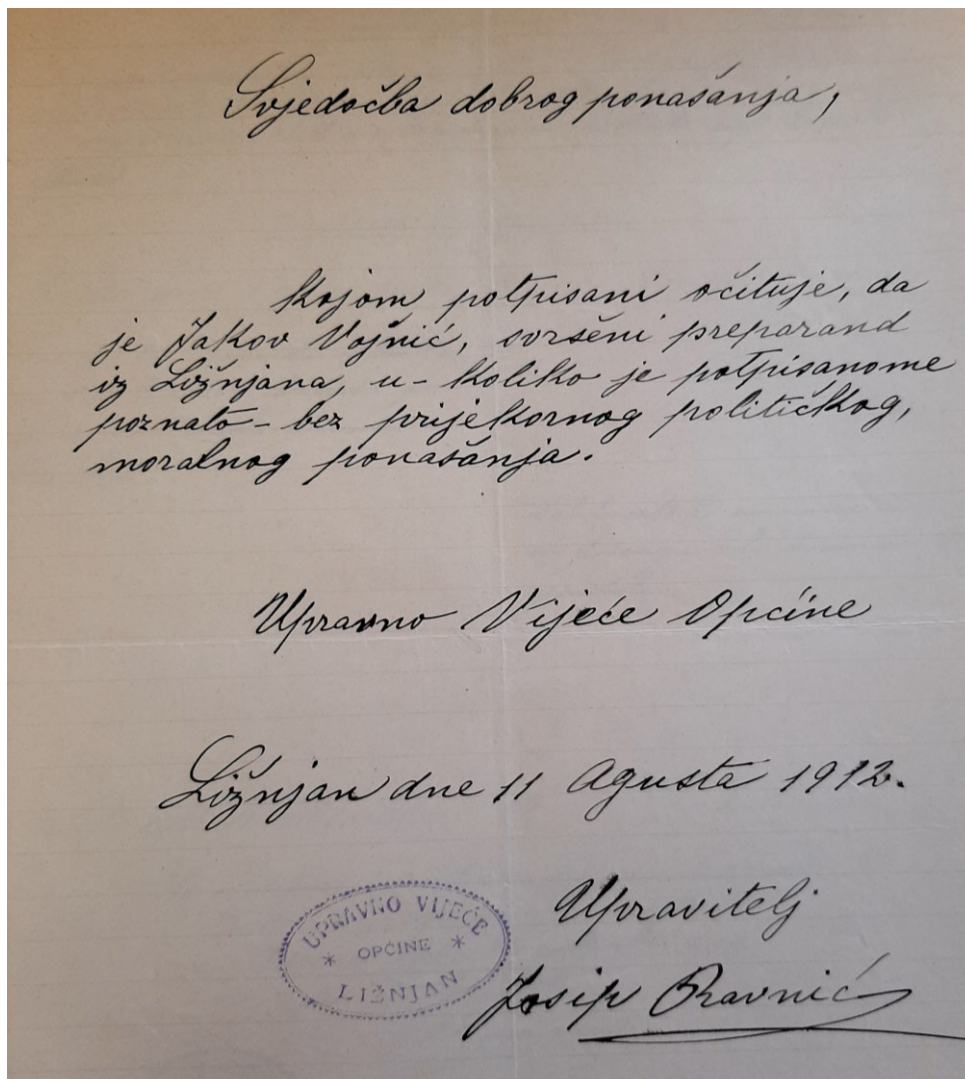 Svjedočba dobrog ponašanja,
kojom potpisani očituje, da
je Jakov Vojnić, svršeni preparand
iz Ližnjana, u-koliko je potpisanome
poznato - bez prijekornog političkog,
moralnog ponašanja.
Upravno Vijeće Općine
Ližnjan dne 11 Agusta 1912.
UPRAVNO VIJEĆE
* OPĆINE *
LIŽNJAN
Upravitelj
Josip Ravnić